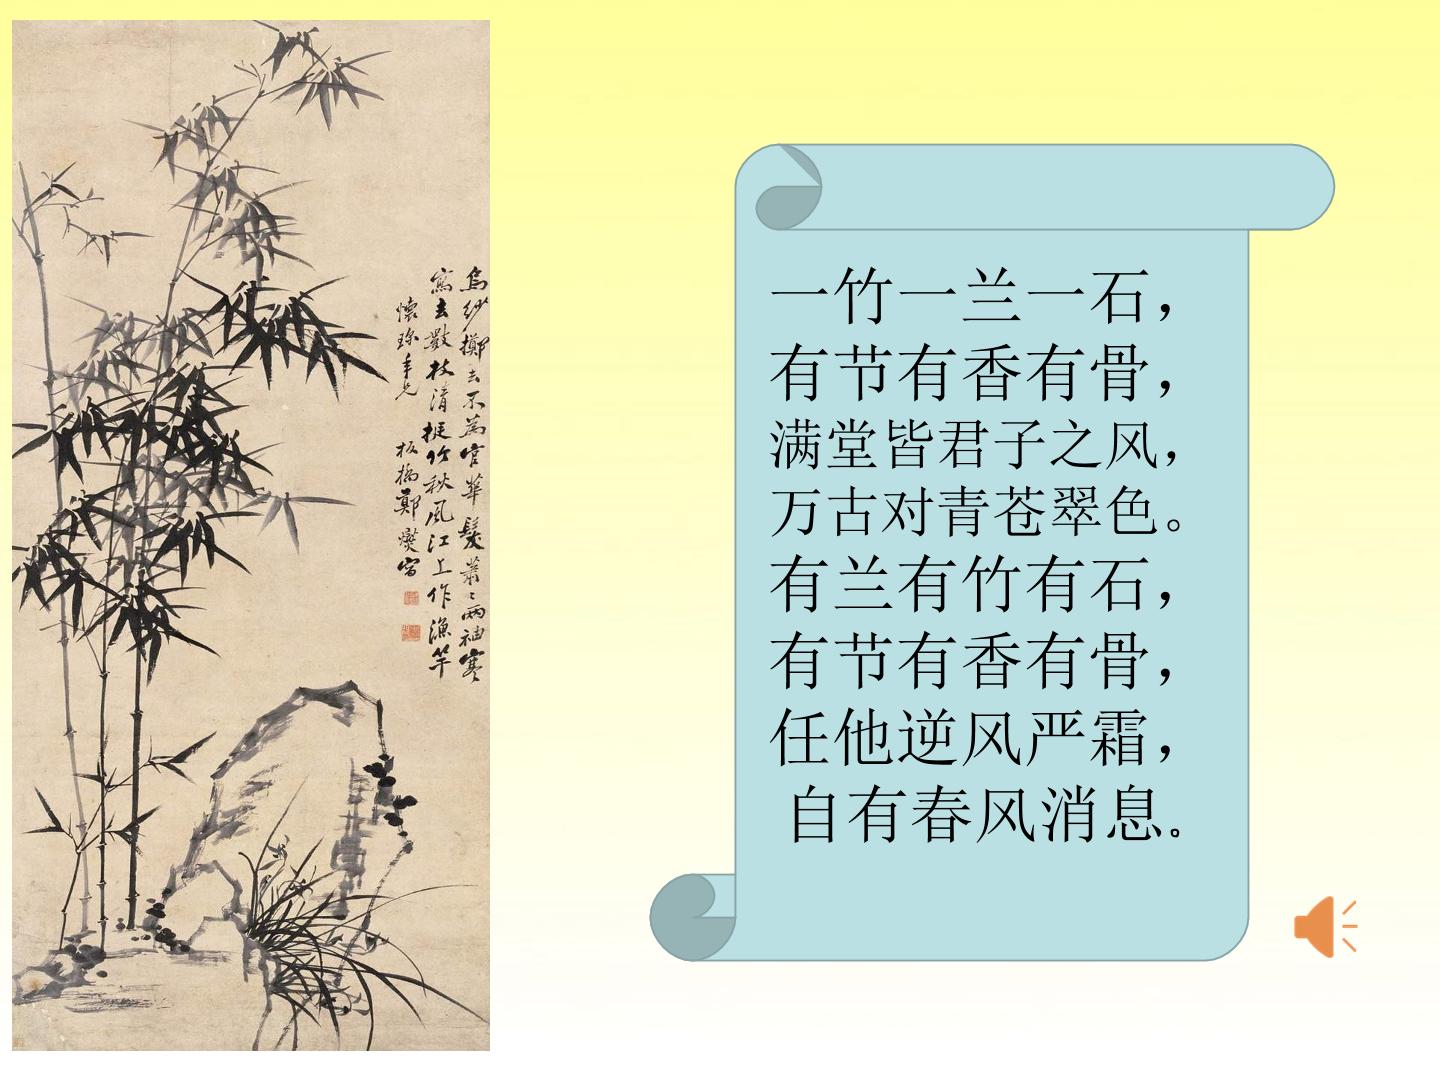 烏紗擲去不為官華髮蕭〻兩袖寒
寫去數枝清挺竹秋風江上作漁竿
懷珍年兄 板橋鄭燮寫
一竹一兰一石，
有节有香有骨，
满堂皆君子之风，
万古对青苍翠色。
有兰有竹有石，
有节有香有骨，
任他逆风严霜，
自有春风消息。